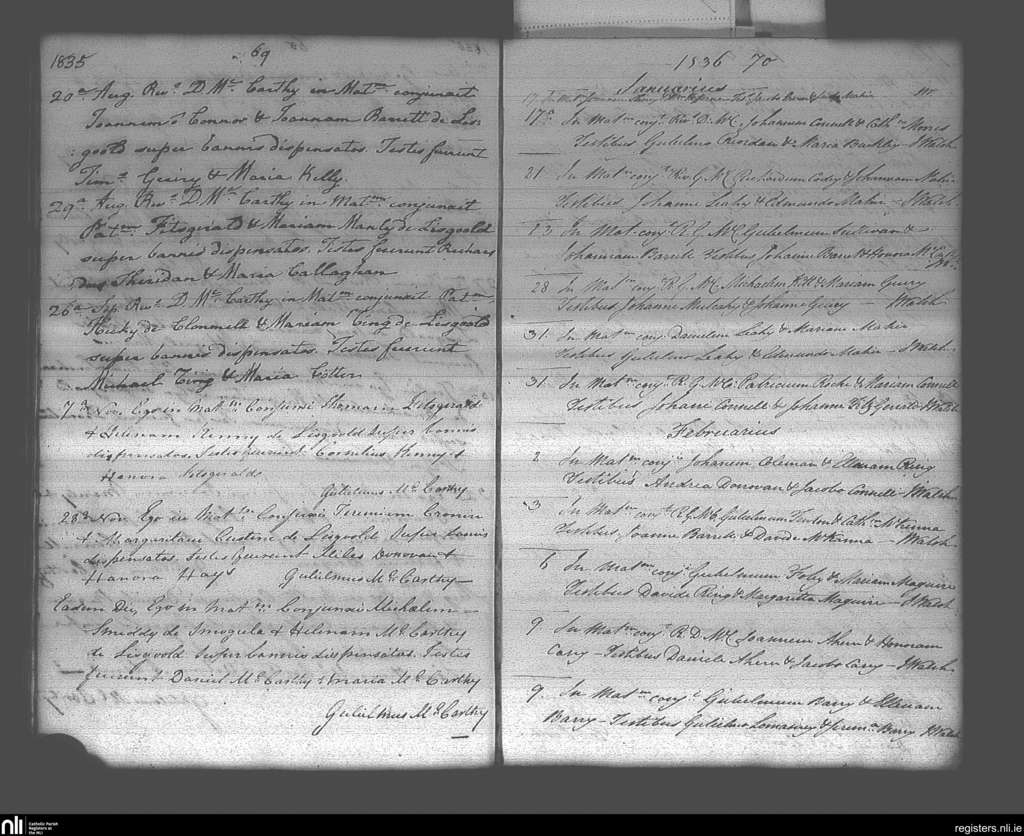 1835
69
20a Aug. Revd. D. McCarthy in Matm. conjunxit
Joannem ô Connor & Joannam Barrett de Lis:
:goold super bannis dispensatos. Testes fuerunt
Timo. Geairy & Maria Kelly.
29a Aug. Revd. D. McCarthy in Matm. conjunxit
Patm. Fitzgerald & Mariam Manly de Lisgoold
super bannis dispensatos. Testes fuerunt Richar
dus Sheridan & Maria Callaghan
26a Sep. Revd. D. McCarthy in Matm. conjunxit Patm.
Hicky de Clonmell & Mariam Ting de Lisgoold
super bannis dispensatos. Testes fuerunt
Michael Ting & Maria Cotter
7a Nov. Ego in Matm. Conjunxi Thomam Fitzgerald
& Kenny de Lisgoold super bannis
dispensatos. Testes fuerunt Cornelius Kenny &
Hanora Fitzgerald
Gulielmus McCarthy
23a Nov. Ego in Matm. Conjunxi Jeremium Cronin
& Margaritam de Lisgoold super bannis
dispensatos. Testes fuerunt Miles Donovan &
Hanora Hays Gulielmus McCarthy—
Eadem Die, Ego in Matm. Conjunxi Michalem
Smiddy de Imogela & Helenam McCarthy
de Lisgoold super bannis dispensatos. Testes
fuerunt Daniel McCarthy & Maria McCarthy
Gulielmus McCarthy
1836 70
Januarius
17a In Matm. conj. Revd. D. McC. Johannem Connell & Cath.
Testibus Gulielmo Riordan & Maria Buckley J Walsh
21 In Matm. conj. Ricardum & Johannam Mahir
Testibus Johanne Leahy & Edmundo Mahir — J Walsh
23 In Matm. conj. R. G. McC. Gulielmum Sullivan &
Johannam Barrett Testibus Johanne Barrett & Honora
28 In Matm. conj. R. G. McC. Michaelem & Mariam Geiry
Testibus Johanne Mulcahy & Johanne Geiry — J Walsh
31 In Matm. conj. Danielem Leahy & Mariam Mahir
Testibus Gulielmo Leahy & Edmundo Mahir — J Walsh
31. In Matm. conj. R. G. McC. Patricium Roche & Mariam Connell
Testibus Johane Connell & Johanna J Walsh
Februarius
2 In Matm. conj. Johanem Coleman & Ellenam Ring
Testibus Andrea Donovan & Jacobo Connell J Walsh
3 In Matm. conj. R. G. McC. Gulielmum Fenton & Cath. McKenna
Testibus Joanne Barrett & Davide McKenna — J Walsh
6 In Matm. conj. Gulielmum Foley & Mariam Maguire
Testibus Davide Ring & Margaretta Maguire — J Walsh
9. In Matm. conj. R. D. McC. Joannem Ahern & Honoram
Cary — Testibus Daniele Ahern & Jacobo Cary — J Walsh
9. In Matm. conj. Gulielmum Barry & Ellenam
Barry — Testibus Gulielmo & Jerema. Barry J Walsh
nli
Catholic Parish
Registers at
the NLI
registers.nli.ie